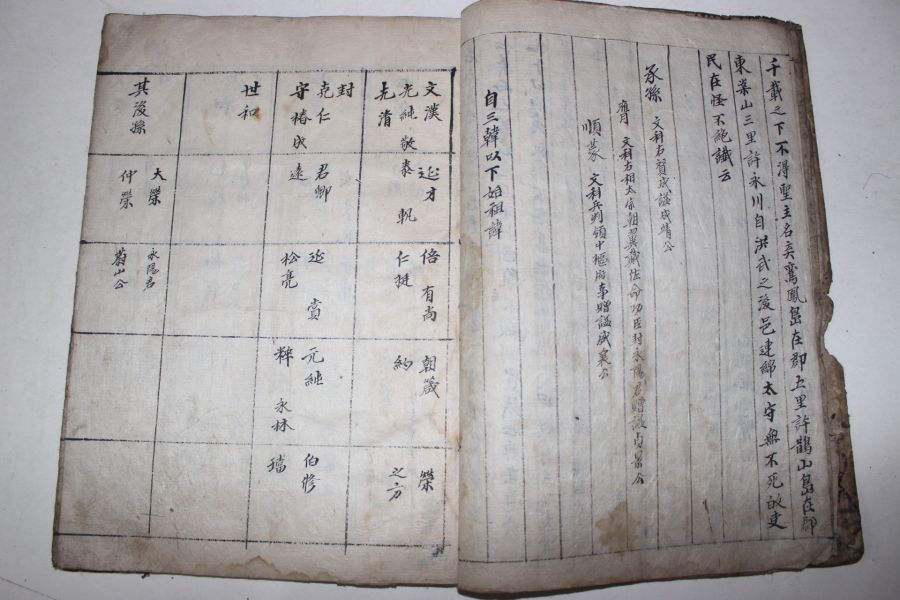 千載之下不得聖主名矣鸞鳳島在郡五里許鵲山島在郡
東業山三里許永川自洪武之後邑建號太守無不死故吏
民在怪不絶讖云
承孫 文科右贊成謚成靖公
膺 文科右相太宗朝翼戴佐命功臣封永陽君贈謚貞景公
順蒙 文科兵判領中樞府事贈謚威襄公
自三韓以下始祖諱
文漢
光純 敬
光清
延才
泰 軌
倍 有尚
仁挺
朝箴
約
榮
之方
封
克仁
守椿成
君卿
遠
延 賞
松亮
元純
粹 永林
伯修
璿
世和
其後孫
大榮
仲榮
永陽君
菊山公